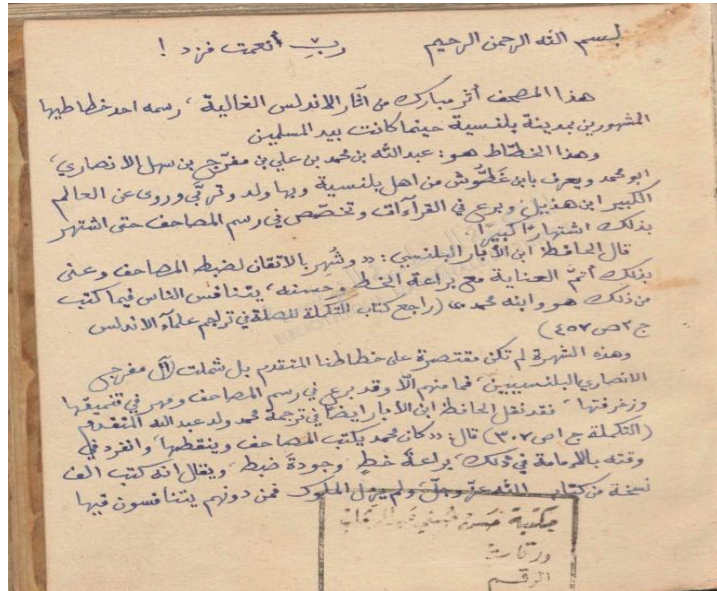 بسم الله الرحمن الرحيم ربِّ أنعمت فزد !
هذا المصحف أثر مبارك من آثار الاندلس الغالية ، رسمه احد خطاطيها
المشهورين بمدينة بلنسية حينما كانت بيد المسلمين
وهذا الخطّاط هو : عبدالله بن محمد بن علي بن مفرّج بن سهل الانصاري ،
ابو محمد ويعرف بابن غَطُّوش من اهل بلنسية وبها ولد وتربّى وروى عن العالم
الكبير ابن هذيل وبرع في القرآءات وتخصّص في رسم المصاحف حتى اشتهر
بذلك اشتهارًا كبيرًا
قال الحافظ ابن الأبار البلنسي : « وشُهر بالاتقان لضبط المصاحف وعنى
بذلك أتمَّ العناية مع براعة الخط وحسنه ، يتنافس الناس فيما كتب
من ذلك هو وابنه محمد » (راجع كتاب التكملة للصلة في تراجم علمآء الاندلس
ج ٢ ص ٤٥٧)
وهذه الشهرة لم تكن مقتصرة على خطاطنا المتقدم بل شملت آل مفرج
الانصاري البلنسيين ، فما منهم الّا وقد برع في رسم المصاحف ومهر في تنميقها
وزخرفتها ، فقد نقل الحافظ ابن الأبار ايضًا في ترجمة محمد ولد عبد الله المتقدم
(التكملة ج ١ ص ٣٠٢) قال : « كان محمد يكتب المصاحف وينقطها ، وانفرد في
وقته بالامامة في ذلك ، براعةَ خطٍ وجودةَ ضبط ، ويقال انه كتب الف
نسخة من كتاب الله عزّ وجلّ ، ولم يزل الملوك فمن دونهم يتنافسون فيها
مكتبة حسن حسني عبد الوهاب
الرقم